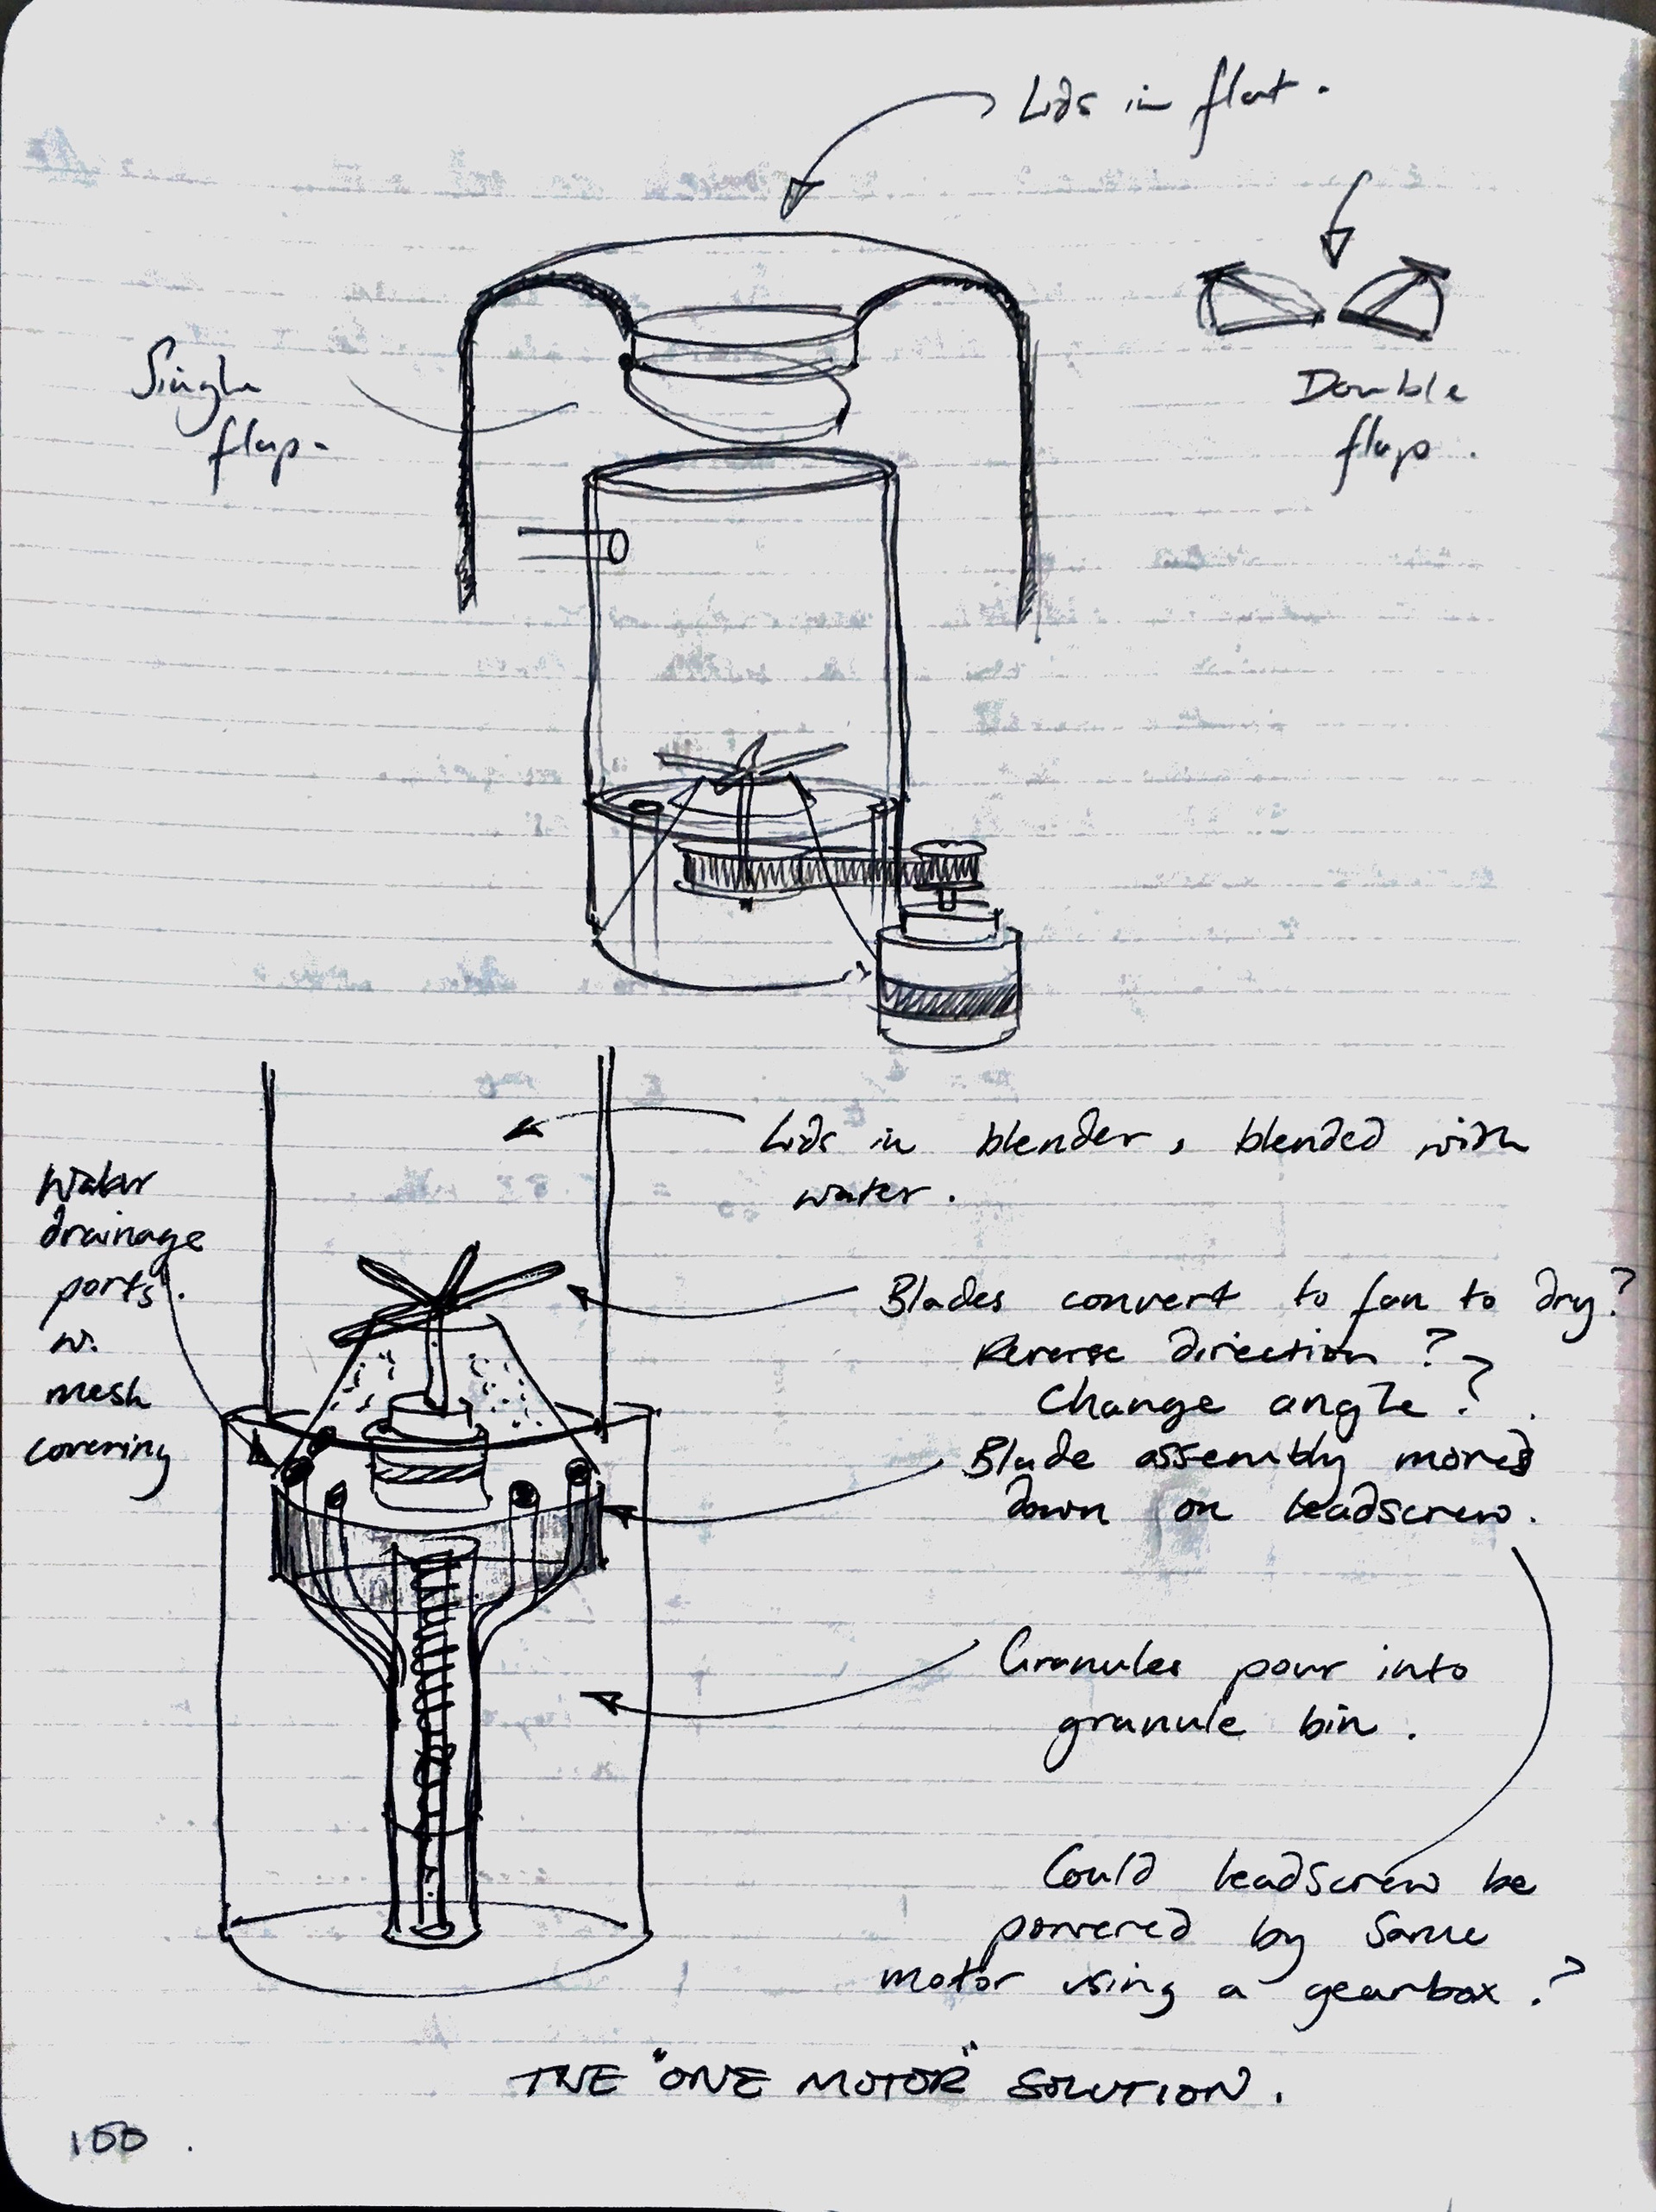 Lids in flat.
Single
flap.
Double
flap.
Lids in blender, blended with
water.
Water
drainage
ports.
w.
mesh
covering
Blades convert to fan to dry?
Reverse direction?
Change angle?
Blade assembly moves
down on leadscrew.
Granules pour into
granule bin.
Could leadscrew be
powered by same
motor using a gearbox?
THE "ONE MOTOR" SOLUTION.
100.